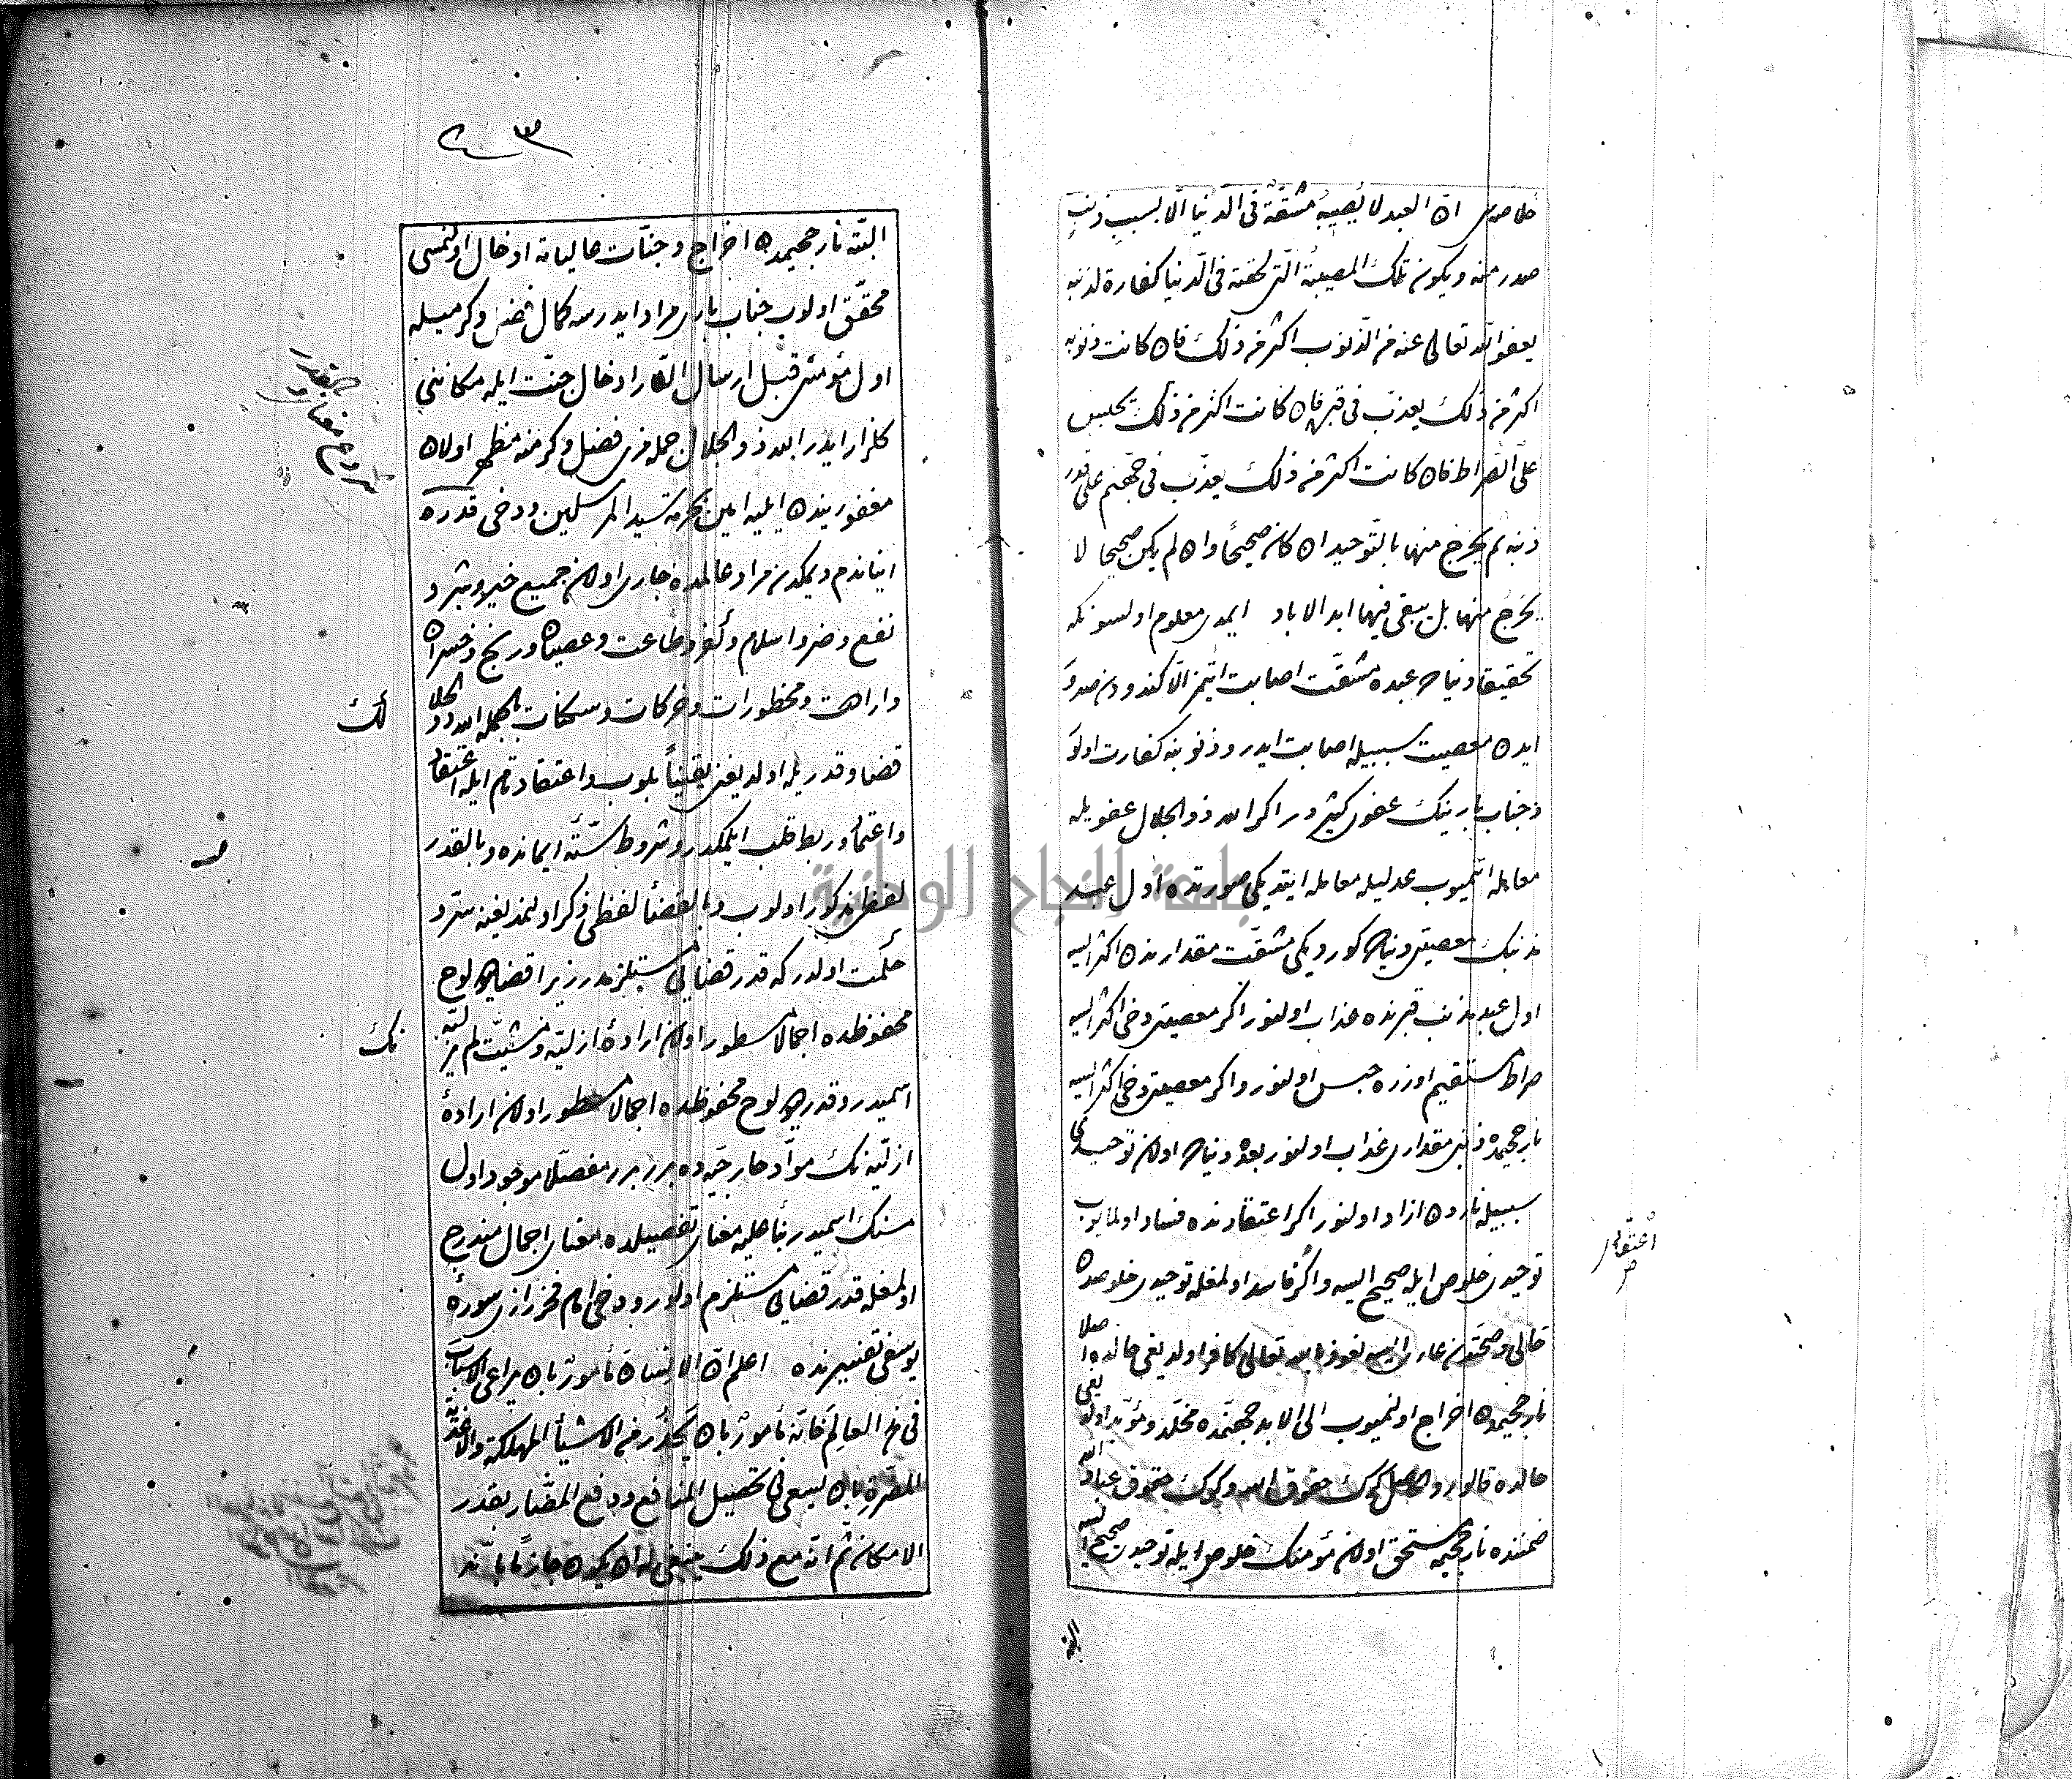 خلاصه‌سی ان العبد لا يصيبه مشقة فی الدنيا الا بسبب ذنب
صدر منه ويكون تلك المصيبة التی لحقته فی الدنيا كفارة لذنبه
يعفو الله تعالى عنه من الذنوب اكثر من ذلك فان كانت ذنوبه
اكثر من ذلك يعذب فی قبره فان كانت اكثر من ذلك يحبس
على الصراط فان كانت اكثر من ذلك يعذب فی جهنم على قدر
ذنبه ثم يخرج منها بالتوحيد ان كان صحيحاً وان لم يكن صحيحا لا
يخرج منها بل يبقى فيها ابد الاباد ايمدی معلوم اولسونكه
تحقيقا دنياده عبده مشقت اصابت ايتمز الا كندودن صدور
ايدن معصيت سببيله اصابت ايدر وذنوبنه كفارت اولور
وجناب بارينك عفوی كثيردر اكر الله ذو الجلال عفويله
معامله اتميوب عدليله معامله ايتديكی صورتده اول عبد
مذنبك معصيتی دنياده كورديكی مشقت مقدارندن اكثر ايسه
اول عبد مذنب قبرنده عذاب اولنور اكر معصيتی دخی اكثر ايسه
صراط مستقيم اوزره حبس اولنور واكر معصيتی دخی اكثر ايسه
نار جحيمده ذنبی مقداری عذاب اولنور بعده دنياده اولان توحيدی
سببيله ناردن ازاد اولنور اكر اعتقادنده فساد اولمايوب
توحيدی خلوص ايله صحيح ايسه واكر فاسد اولمغله توحيدی خلوصدن
خالی وصحتدن عاری ايسه نعوذ بالله تعالى كافر اولديغی حالده اصلا
نار جحيمدن اخراج اولنميوب الى الابد جهنمده مخلد ومؤبد اولديغی
حالده قالور والحاصل كرك حقوق الله وكرك حقوق عباد الله
ضمننده نار جحيمه مستحق اولان مؤمنك خلوص ايله توحيدی صحيح ايسه
البته
اعتقادی
صح
البته نار جحيمدن اخراج وجنات عاليانه ادخال اولنمسی
محقق اولوب جناب باری مراد ايدرسه كمال فضل وكرميله
اول مؤمنی قبل ارسال النار ادخال جنت ايله مكاننی
كلزار ايدر الله ذو الجلال جمله‌مزی فضل وكرمنه مظهر اولان
مغفورينده ايليه امين بحرمة سيد المرسلين ودخی قدره
ايناندم ديمكدن مراد عالمده جاری اولان جميع خير وشر و
نفع وضر واسلام وكفر وطاعت وعصيان وربح وخسران
واراهت ومحظورات وحركات وسكنات بالجمله الله ذو الجلالك
قضا وقدريله اولديغنی يقيناً بلوب واعتقاد تام ايله اعتقاد
واعتماد وربط قلب ايلمكدر وشروط ستۀ ايمانده وبالقدر
لفظی مذكور اولوب وبالقضا لفظی ذكر اولنمديغنه سر و
حكمت اولدركه قدر قضايی مستلزمدر زيرا قضا لوح
محفوظده اجمالا مسطور اولان ارادۀ ازليه ومشيت لم يزليه‌نك
اسميدر وقدر لوح محفوظده اجمالا مسطور اولان ارادۀ
ازليه‌نك مواد خارجيه‌ده برر برر مفصلا موجود اول
مسنك اسميدر بناً عليه معنای تفصيلده معنای اجمال مندرج
اولمغله قدر قضايی مستلزم اولور ودخی امام فخر رازی سورۀ
يوسفی تفسيرنده اعلم ان الانسان مأمور بان يراعی الاسباب
فی هذا العالم فانه مأمور بان يحذر من الاشيأ المهلكة والاغذية
المضرة بان يسعى فی تحصيل المنافع ودفع المضار بقدر
الامكان ثم انه مع ذلك ينبغی له ان يكون جازماً بانه
جامعة النجاح الوطنية